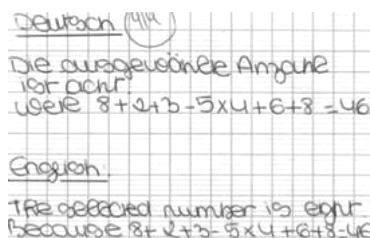 Deutsch 4|4
Die ausgewähnele Anzahl
ist acht.
were 8+2+3-5x4+6+8=46
English
The selected number is eight
Because 8+2+3-5x4+6+8=46